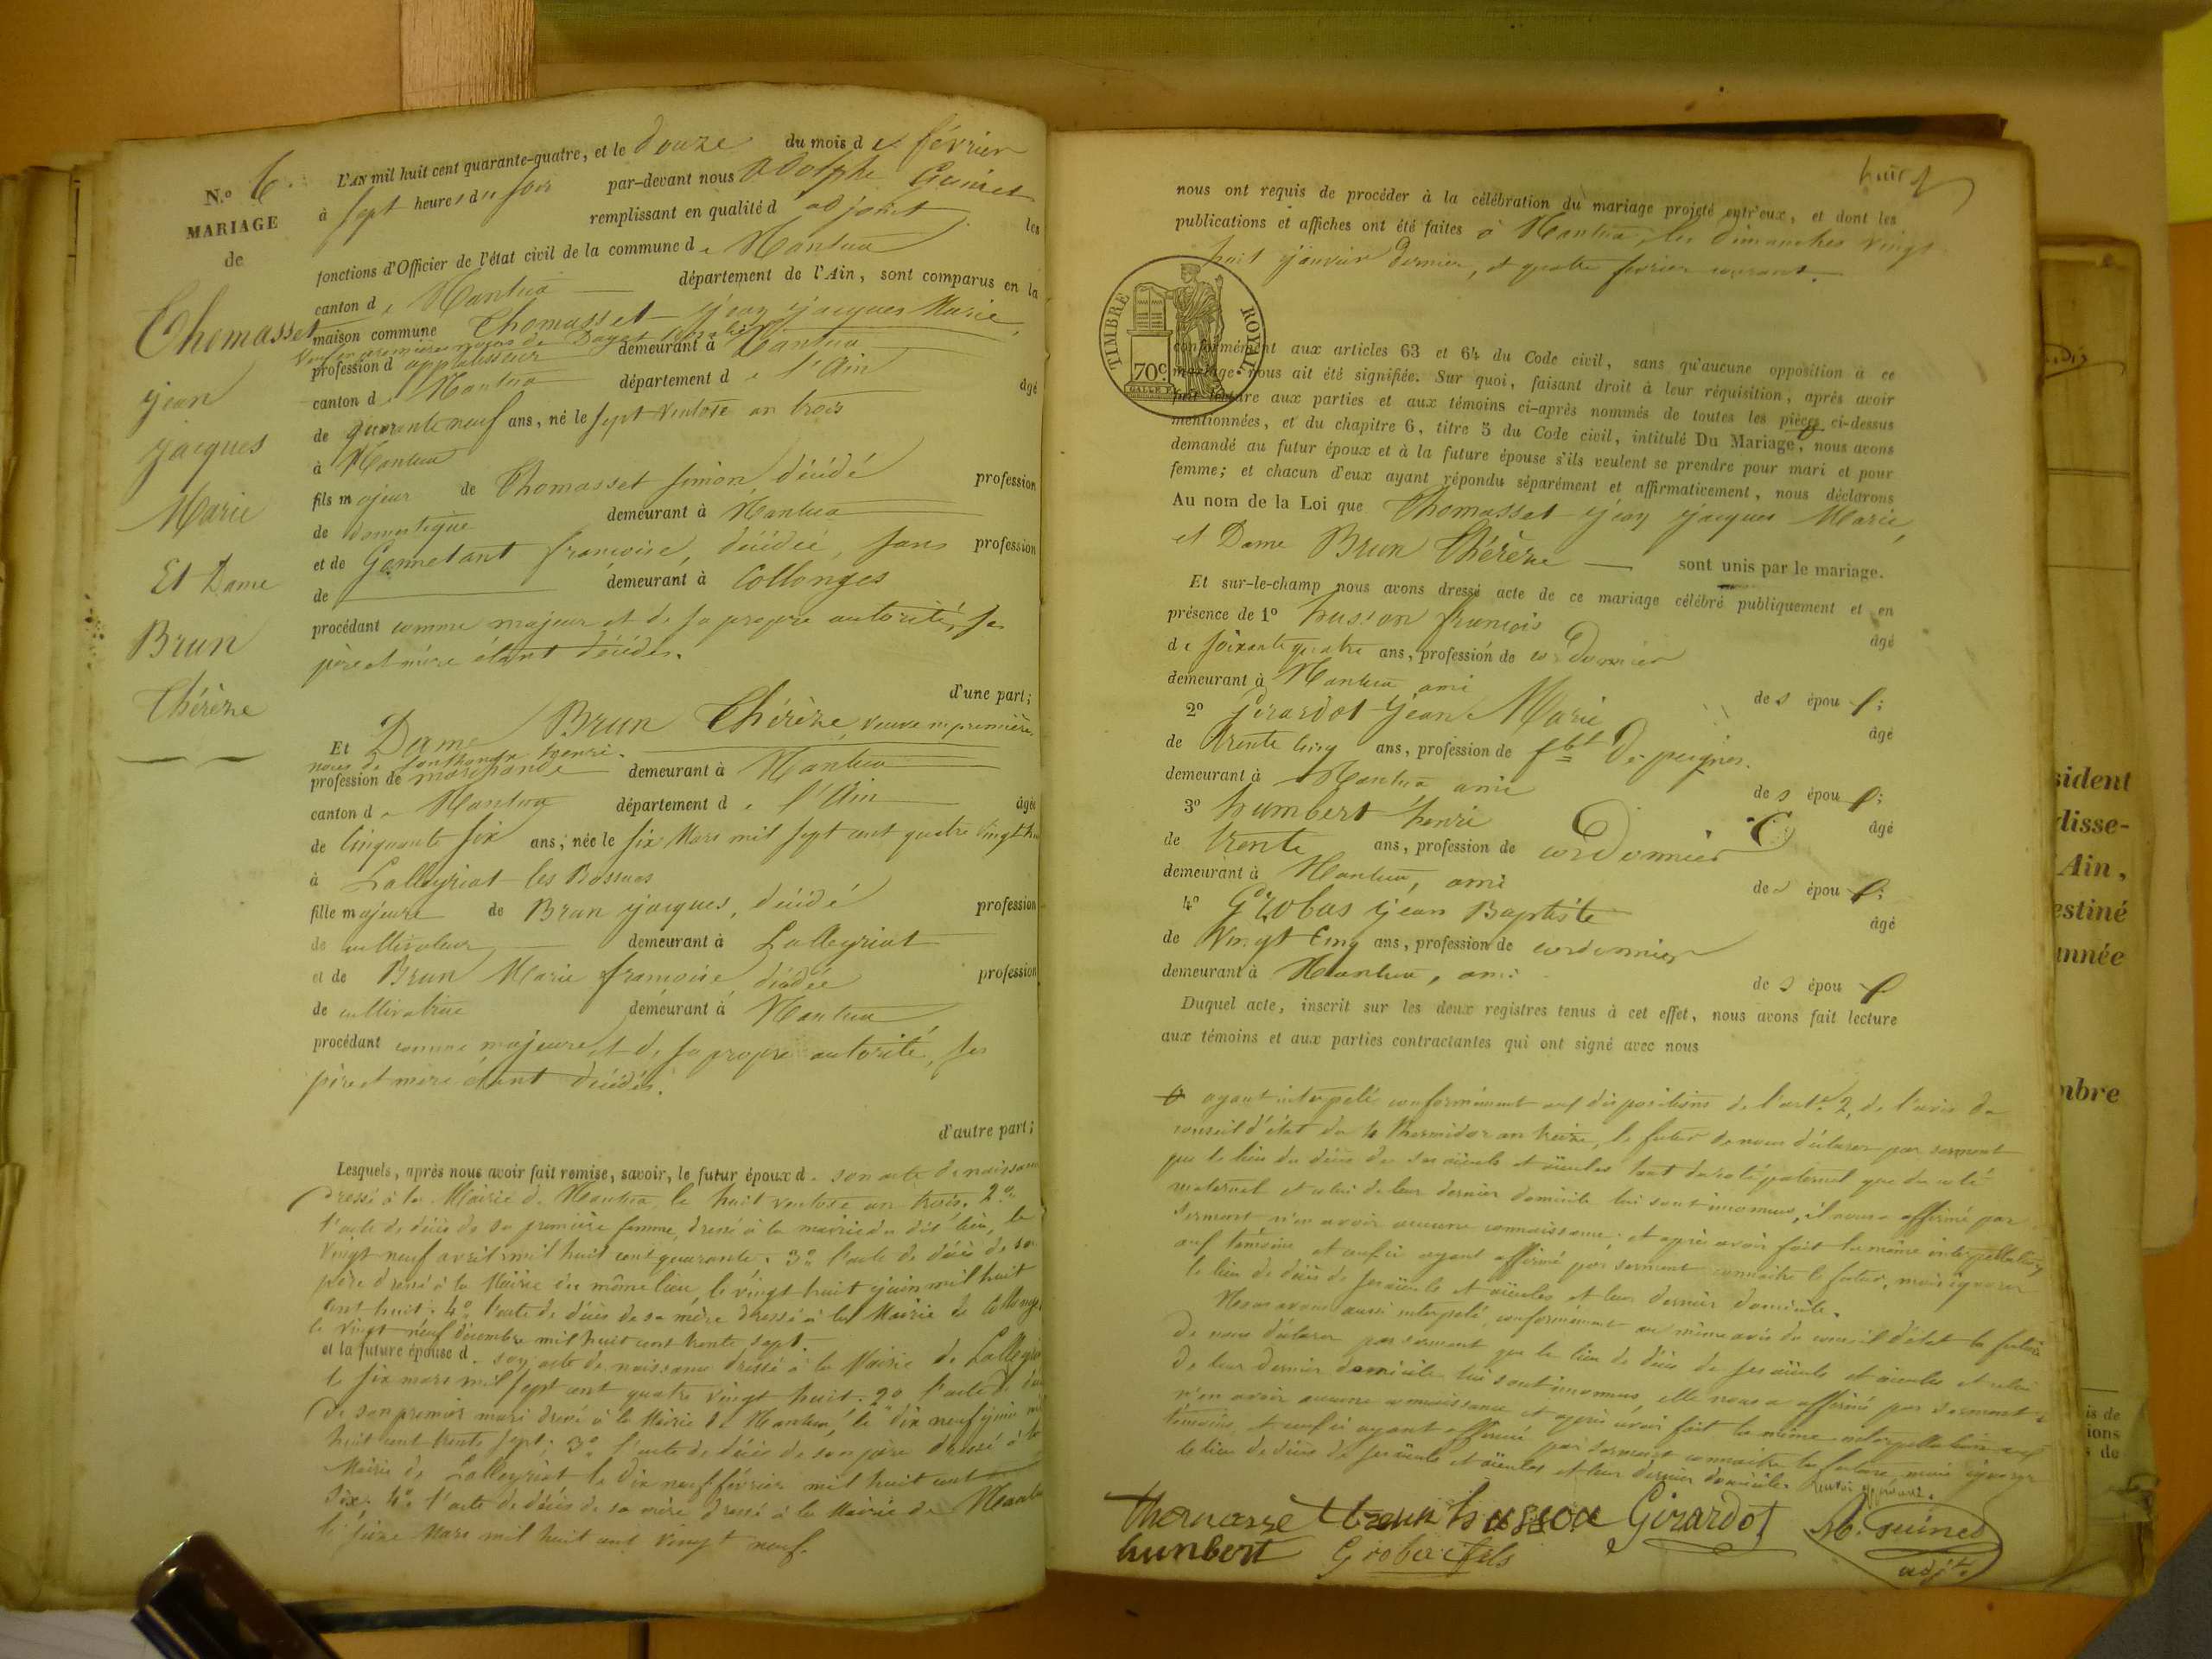 N.º 6.
MARIAGE
de
Thomasset
jean
jacques
Marie
Et Dame
Brun
Thérèze
L'AN mil huit cent quarante-quatre, et le douze du mois de février
à sept heures du soir par-devant nous Adolphe Guinet
remplissant en qualité d'adjoint les
fonctions d'Officier de l'état civil de la commune de Nantua
canton de Nantua département de l'Ain, sont comparus en la
maison commune Thomasset jean jacques Marie,
veuf en premières noces de
profession d'applatisseur demeurant à Nantua
canton de Nantua département de l'Ain âgé
de quarante neuf ans, né le sept ventose an trois
à Nantua
fils majeur de Thomasset simon, décédé profession
de domestique demeurant à Nantua
et de Gannetant françoise, décédée, sans profession
de demeurant à Collonges
procédant comme majeur et de sa propre autorité, ses
père et mère étant décédés.
d'une part;
Et Dame Brun Thérèze, veuve en première
noces de henri.
profession de marchande demeurant à Nantua
canton de Nantua département de l'Ain âgée
de cinquante six ans; née le six Mars mil sept cent quatre vingt hu
à Lalleyriat les Bossues
fille majeure de Brun jacques, décédé profession
de cultivateur demeurant à Lalleyriat
et de Brun Marie françoise, décédée profession
de cultivatrice demeurant à Nantua
procédant comme majeure et de sa propre autorité, ses
père et mère étant décédés.
d'autre part;
Lesquels, après nous avoir fait remise, savoir, le futur époux de son acte de naissance
dressé à la Mairie de Nantua le huit ventose an trois. 2º
l'acte de décès de sa première femme, dressé à la mairie du dit lieu, le
vingt neuf avril mil huit cent quarante. 3º l'acte de décès de son
père dressé à la Mairie du même lieu, le vingt huit juin mil huit
cent huit. 4º l'acte de décès de sa mère dressé à la Mairie de Collonges
le vingt neuf décembre mil huit cent trente sept.
et la future épouse d. son acte de naissance dressé à la Mairie de Lalleyriat
le six mars mil sept cent quatre vingt huit. 2º l'acte de décès
de son premier mari dressé à la Mairie de Nantua, le dix neuf juin mil
huit cent trente sept. 3º l'acte de décès de son père dressé à la
Mairie de Lalleyriat le dix neuf février mil huit cent
six. 4º l'acte de décès de sa mère dressé à la Mairie de Nantua
le seize Mars mil huit cent vingt neuf.
huit
nous ont requis de procéder à la célébration du mariage projeté entr'eux, et dont les
publications et affiches ont été faites à Nantua, les dimanches vingt
huit janvier dernier, et quatre fevrier courant.
TIMBRE ROYAL
70c.
conformément aux articles 63 et 64 du Code civil, sans qu'aucune opposition à ce
mariage nous ait été signifiée. Sur quoi, faisant droit à leur réquisition, après avoir
fait lecture aux parties et aux témoins ci-après nommés de toutes les pièces ci-dessus
mentionnées, et du chapitre 6, titre 5 du Code civil, intitulé Du Mariage, nous avons
demandé au futur époux et à la future épouse s'ils veulent se prendre pour mari et pour
femme; et chacun d'eux ayant répondu séparément et affirmativement, nous déclarons
Au nom de la Loi que Thomasset jean jacques Marie,
et Dame Brun Thérèze sont unis par le mariage.
Et sur-le-champ nous avons dressé acte de ce mariage célébré publiquement et en
présence de 1º husson françois âgé
de soixante quatre ans, profession de cordonnier
demeurant à Nantua ami des époux;
2º Girardot jean Marie âgé
de trente cinq ans, profession de fbt De peignes.
demeurant à Nantua ami des époux;
3º humbert henri âgé
de trente ans, profession de cordonnier
demeurant à Nantua, ami des époux;
4º Grobas jean Baptiste âgé
de Vingt cinq ans, profession de cordonnier
demeurant à Nantua, ami des époux
Duquel acte, inscrit sur les deux registres tenus à cet effet, nous avons fait lecture
aux témoins et aux parties contractantes qui ont signé avec nous
ayant interpelé conformément aux dispositions de l'art. 2, de l'avis du
conseil d'état du 4 thermidor an treize, le futur de nous déclarer par serment
que le lieu du décès de ses aïeuls et aïeules tant du côté paternel que du coté
maternel et celui de leur dernier domicile lui sont inconnus, il nous a affirmé par
serment n'en avoir aucune connaissance; et après avoir fait la même interpellation
aux témoins et ceux ci ayant affirmé par serment connaitre le futur, mais ignorer
le lieu de décès de ses aïeuls et aïeules et leur dernier domicile.
Nous avons aussi interpelé, conformément au même avis du conseil d'état la future
de nous déclarer par serment que le lieu de décès de ses aïeuls et aïeules et celui
de leur dernier domicile lui sont inconnus, elle nous a affirmé par serment
n'en avoir aucune connaissance et après avoir fait la même interpellation aux
témoins, et ceux ci ayant affirmé par serment connaitre la future, mais ignorer
le lieu de décès de ses aïeuls et aïeules et leur dernier domicile. Renvoi approuvé.
husson Girardot Ad. Guinet
humbert fils adjt.
sident
disse-
Ain,
estiné
nnée
mbre
is de
ions
s de